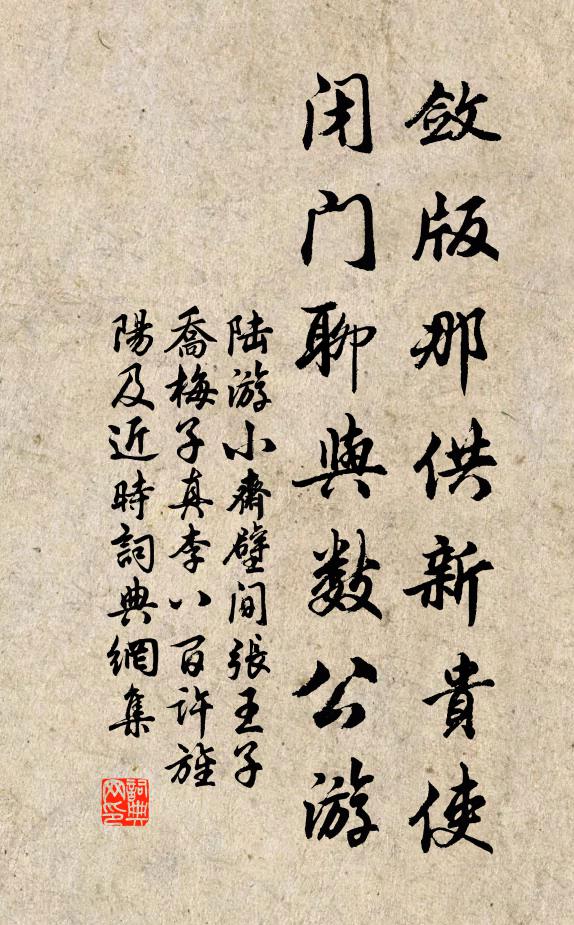 敛版那供新貴使
闭门聊與数公游
陆游小齋壁间張王子
喬梅子真李八百许旌
陽及近時詞典網集
詞典
网印